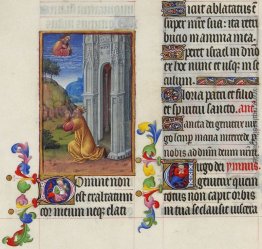 omine non est
exaltatum
cor meum neq3 elati
ablactatus e
super mrē sua: ita retri
bucio in anima mea.
peret israel in dno
ex hoc nunc et usq3 in se
culum.
Gloria patri et filio
et spiritui sancto. ant
Sancta dei genitrix vir
go semp maria interced
nobis ad dnm deum
Virgo dei ymnus.
genitrix quem
totus non capit orbis
in tua se clausit viscera